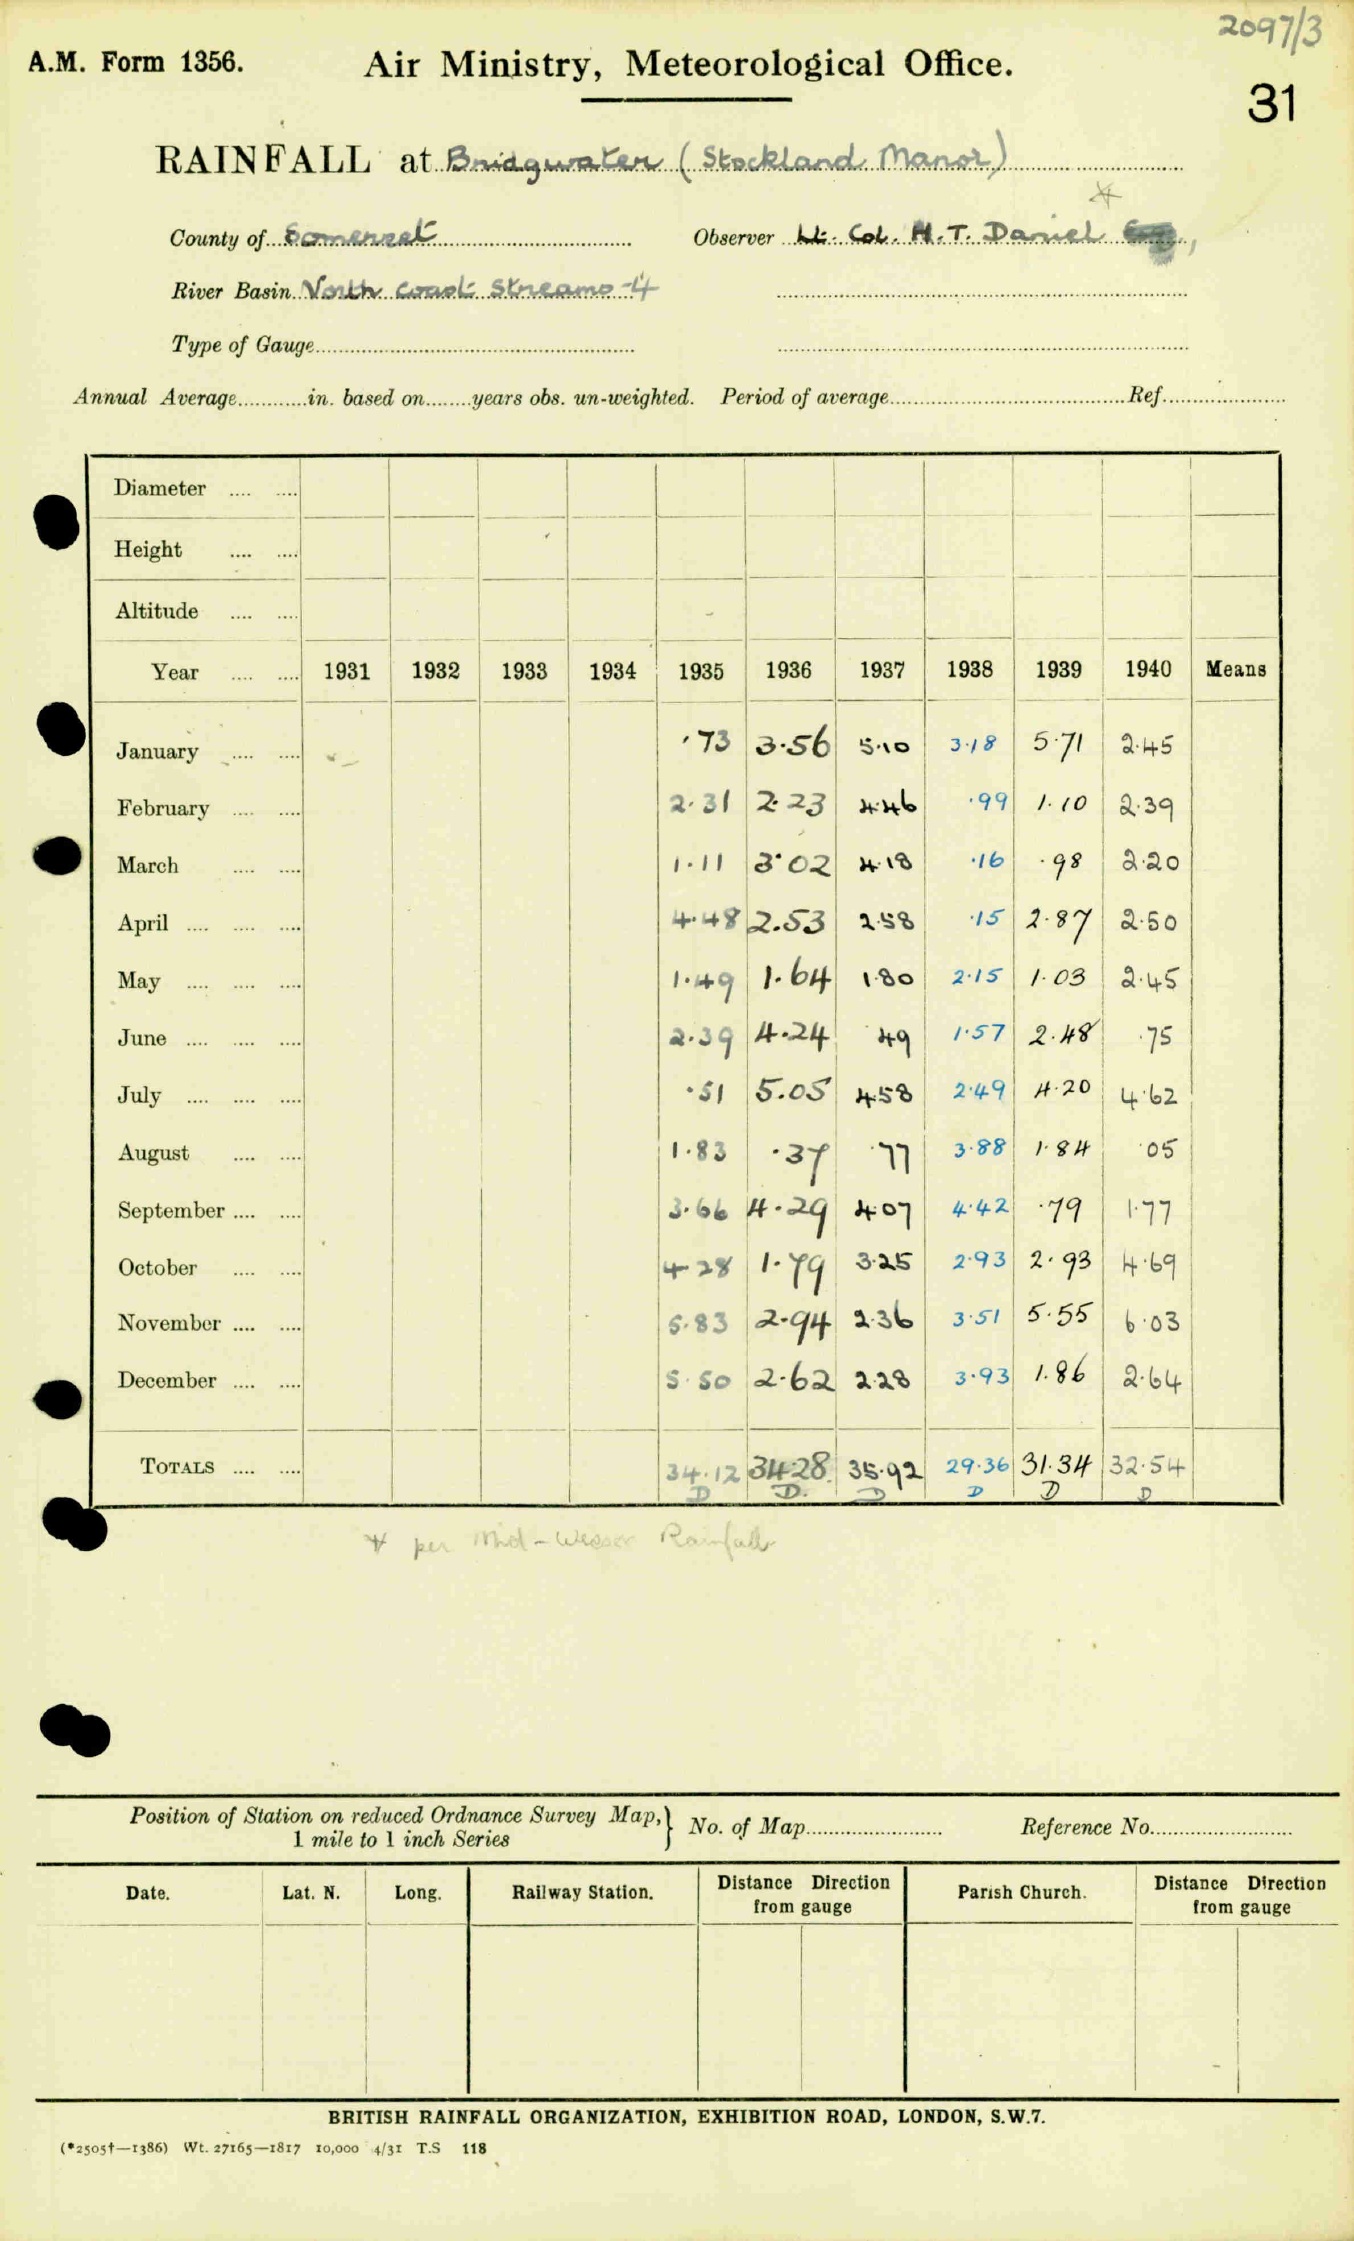 2097/3
A.M. Form 1356. Air Ministry, Meteorological Office.
31
RAINFALL at Bridgwater (Stockland Manor)
County of Somerset Observer Lt. Col. H.T. Daniel
River Basin North Coast Streams -4
Type of Gauge
Annual Average in. based on years obs. un-weighted. Period of average Ref.
Diameter
Height
Altitude
Year 1931 1932 1933 1934 1935 1936 1937 1938 1939 1940 Means
January ·73 3·56 5·10 3·18 5·71 2·45
February 2·31 2·23 4·46 ·99 1·10 2·39
March 1·11 3·02 4·18 ·16 ·98 2·20
April 4·48 2·53 2·58 ·15 2·87 2·50
May 1·49 1·64 1·80 2·15 1·03 2·45
June 2·39 4·24 49 1·57 2·48 ·75
July ·51 5·05 4·58 2·49 4·20 4·62
August 1·83 ·37 ·77 3·88 1·84 ·05
September 3·66 4·29 4·07 4·42 ·79 1·77
October 4·28 1·79 3·25 2·93 2·93 4·69
November 5·83 2·94 2·36 3·51 5·55 6·03
December 5·50 2·62 2·28 3·93 1·86 2·64
TOTALS 34·12 34·28 35·92 29·36 31·34 32·54
D D. D D D D
* per Mid-Wessex Rainfall
Position of Station on reduced Ordnance Survey Map, } No. of Map Reference No.
1 mile to 1 inch Series
Date. Lat. N. Long. Railway Station. Distance Direction from gauge Parish Church. Distance Direction from gauge
BRITISH RAINFALL ORGANIZATION, EXHIBITION ROAD, LONDON, S.W.7.
(*2505†—1386) Wt. 27165—1817 10,000 4/31 T.S 118